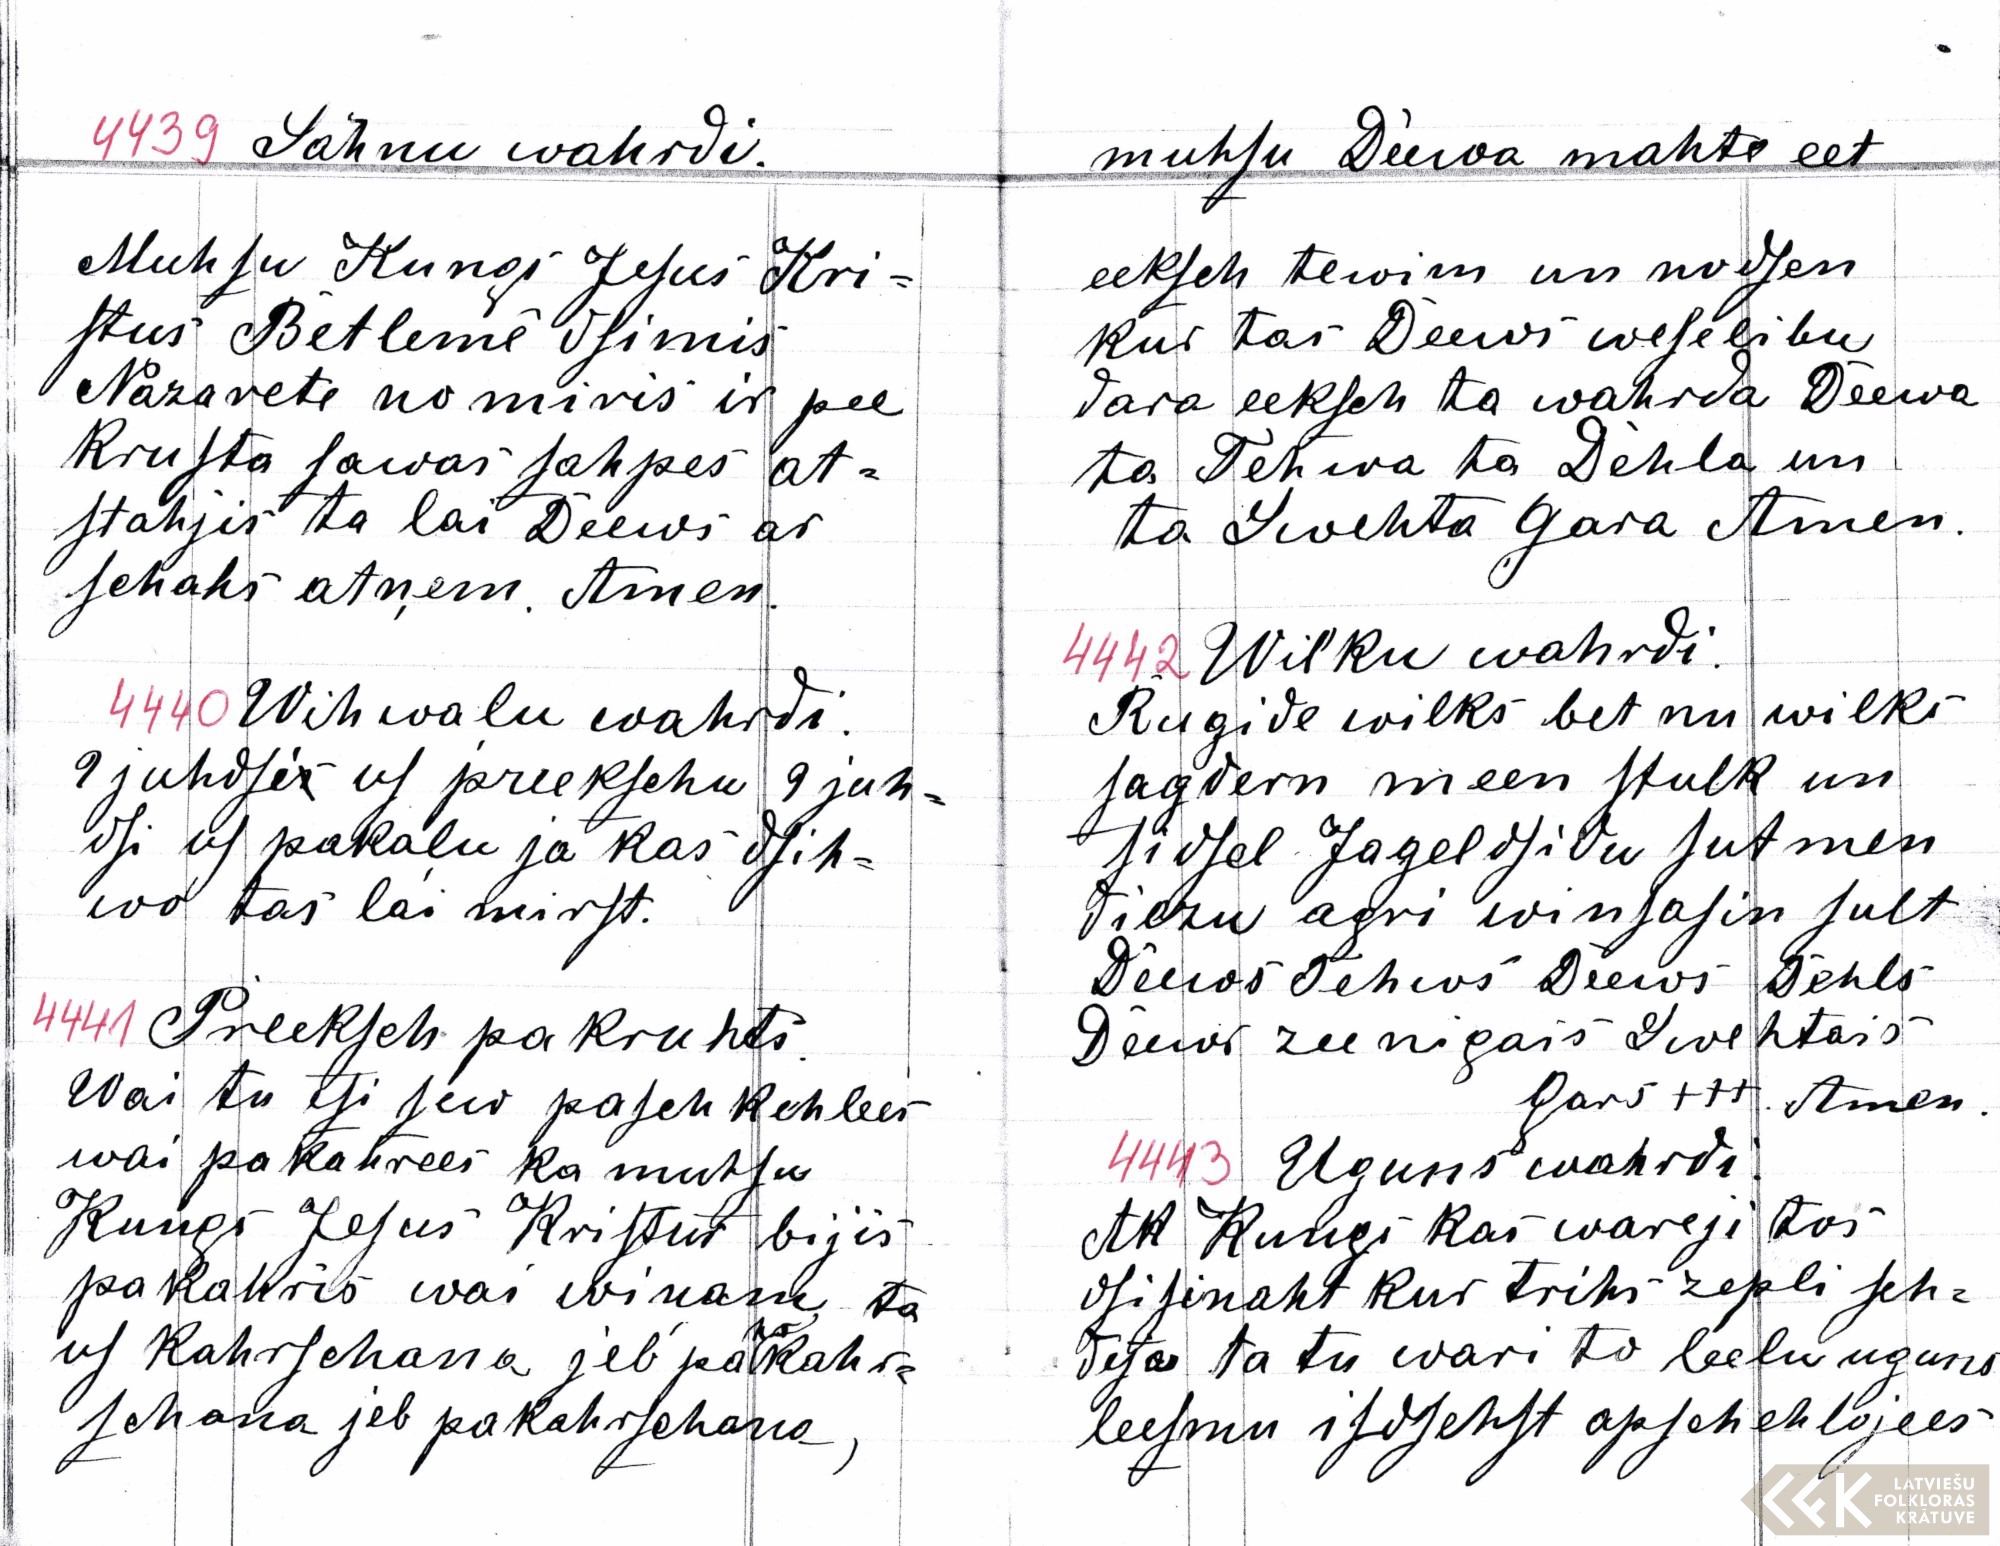 4439 Sähnu wahrdi.
Muhsu Kungs Jesus Kri=
stus Betlemē dsimis
Nazarete nomiris ir pee
krusta sawas sahpes at=
stahjis ta lai Deews ar
schahs atņem. Amen.
4440 Wihwalu wahrdi.
9 juhdsis us preekschu 9 juh=
dsi us pakalu ja kas dsih=
wo tas lai mirst.
4441 Preeksch pakruhts.
Wai tu esi sew pasch kehlees
wai pakahrees ka muhsu
Kungs Jesus Kristus bijis
pakahris wai winam ta
us kahrschana jeb pa kahr=
schana jeb pakahrschana,
muhsu Deewa mahte eet
eeksch tewim un nodsen
kur tas Deews weselibu
dara eeksch ta wahrda Deewa
ta Tehwa ta Dehla un
ta Swehta Gara Amen.
4442 Wilku wahrdi.
Rugide wilks bet nu wilks
sagdern meen stulk un
sidsel Jageldsidu sutmen
diezu agri winsasin sult
Deews Tehws Deews Dehls
Deews zeenigais Swehtais
Gars +++. Amen.
4443 Uguns wahrdi.
Ak Kungs kas wareji tos
dsisinaht kur trihs zepli seh=
deja ta tu wari to leelu uguns
leesmu isdsehst apschehlojees
LATVIEŠU
FOLKLORAS
KRĀTUVE